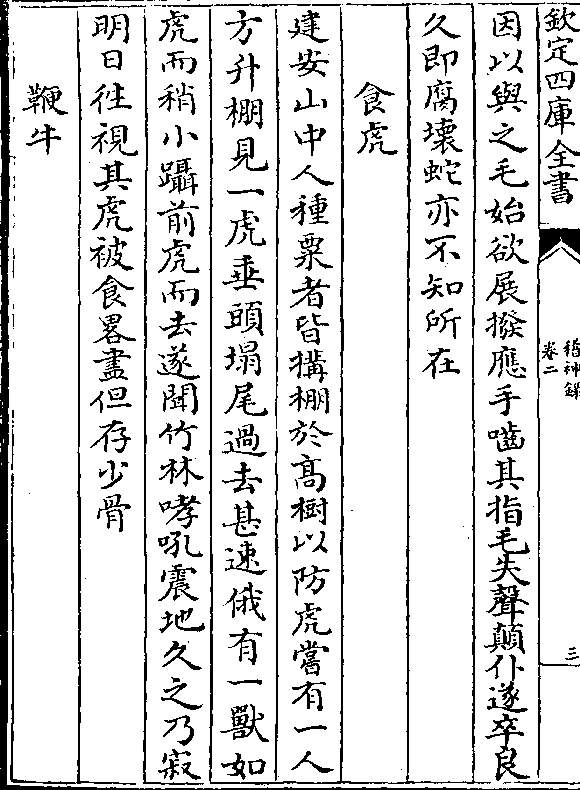 欽定四庫全書
稽神録
卷二
三
因以與之毛始欲展撥應手嚙其指毛失聲顛仆遂卒良
久即腐壞蛇亦不知所在
食虎
建安山中人種粟者皆搆棚於高樹以防虎嘗有一人
方升棚見一虎垂頭塌尾過去甚速俄有一獸如
虎而稍小躡前虎而去遂聞竹林哮吼震地久之乃寂
明日徃視其虎被食畧盡但存少骨
鞭牛